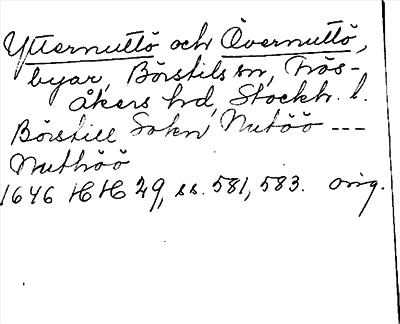 Ytternuttö och Övernuttö,
byar, Börstils sn, Frös-
åkers hd, Stockh. l.
Börstill Sokn Nutöö ---
Nuthöö
1646 HH 29, ss. 581, 583. orig.